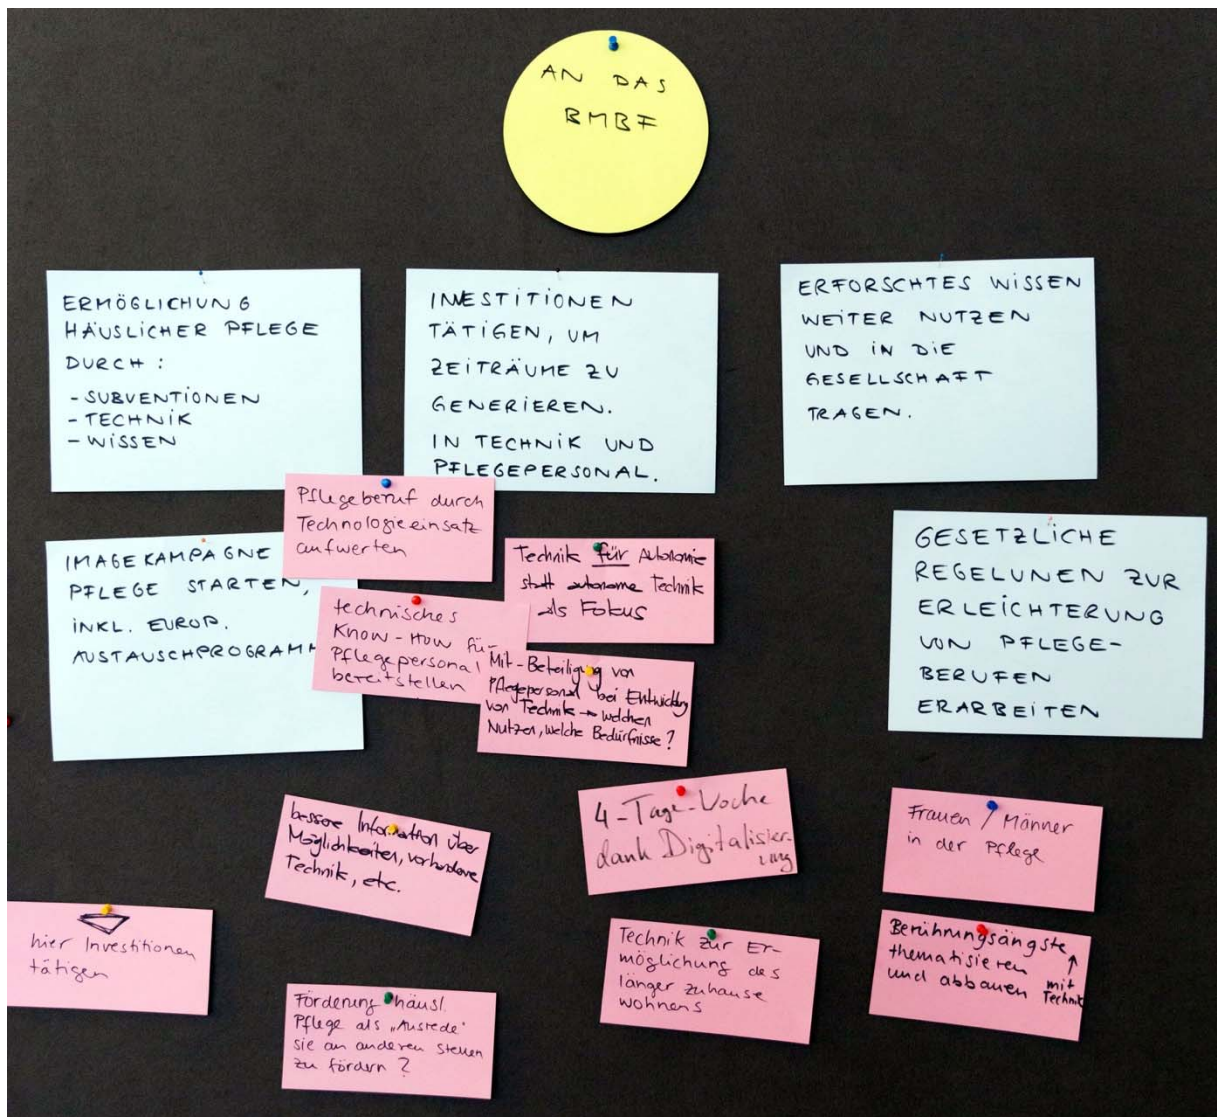 AN DAS
BMBF
ERMÖGLICHUNG
HÄUSLICHER PFLEGE
DURCH:
- SUBVENTIONEN
- TECHNIK
- WISSEN
INVESTITIONEN
TÄTIGEN, UM
ZEITRÄUME ZU
GENERIEREN.
IN TECHNIK UND
PFLEGEPERSONAL.
ERFORSCHTES WISSEN
WEITER NUTZEN
UND IN DIE
GESELLSCHAFT
TRAGEN.
IMAGEKAMPAGNE
PFLEGE STARTEN,
INKL. EUROP.
AUSTAUSCHPROGRAMM
Pflegeberuf durch
Technologieeinsatz
aufwerten
Technik für Autonomie
statt autonome Technik
als Fokus
technisches
Know-How für
Pflegepersonal
bereitstellen
Mit-Beteiligung von
Pflegepersonal bei Entwicklung
von Technik → welchen
Nutzen, welche Bedürfnisse?
GESETZLICHE
REGELUNEN ZUR
ERLEICHTERUNG
VON PFLEGE-
BERUFEN
ERARBEITEN
bessere Information über
Möglichkeiten, vorhandene
Technik, etc.
4-Tage-Woche
dank Digitalisier-
ung
Frauen / Männer
in der Pflege
hier Investitionen
tätigen
Förderung häusl.
Pflege als „Ausrede"
sie an anderen Stellen
zu fördern?
Technik zur Er-
möglichung des
länger zuhause
wohnens
Berührungsängste
thematisieren
und abbauen
↑
mit
Technik